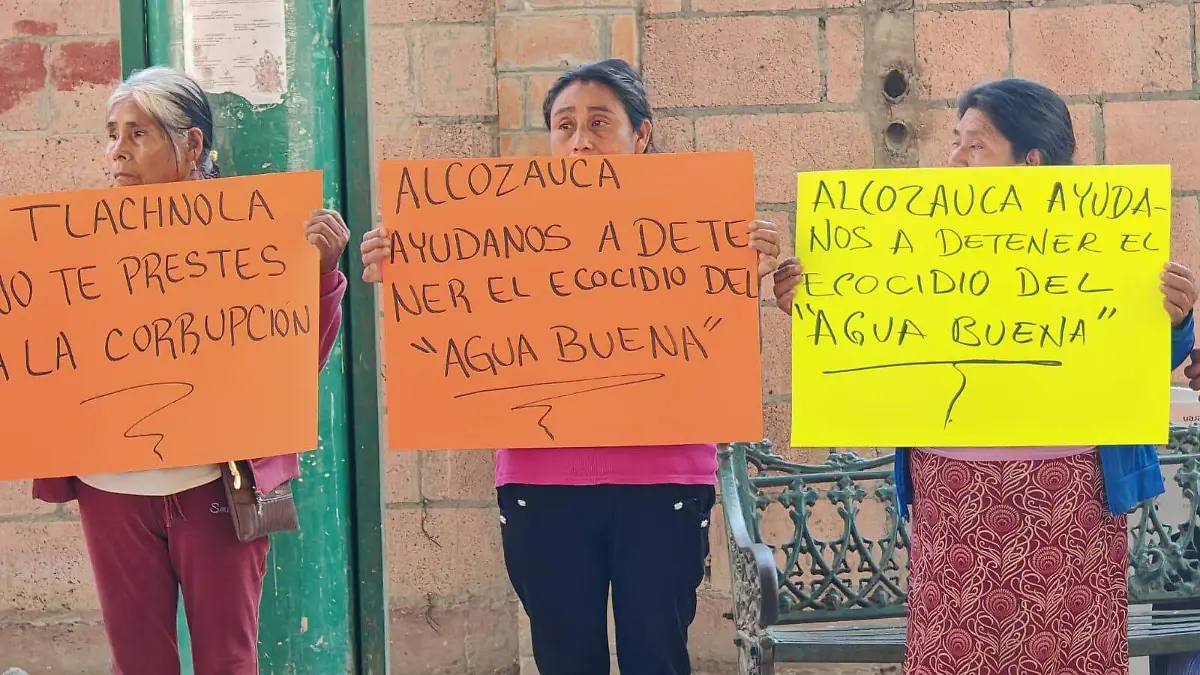 TLACHNOLA
NO TE PRESTES
A LA CORRUPCIÓN
ALCOZAUCA
AYUDANOS A DETE
NER EL ECOCIDIO DEL
"AGUA BUENA"
ALCOZAUCA AYUDA-
NOS A DETENER EL
ECOCIDIO DEL
"AGUA BUENA"